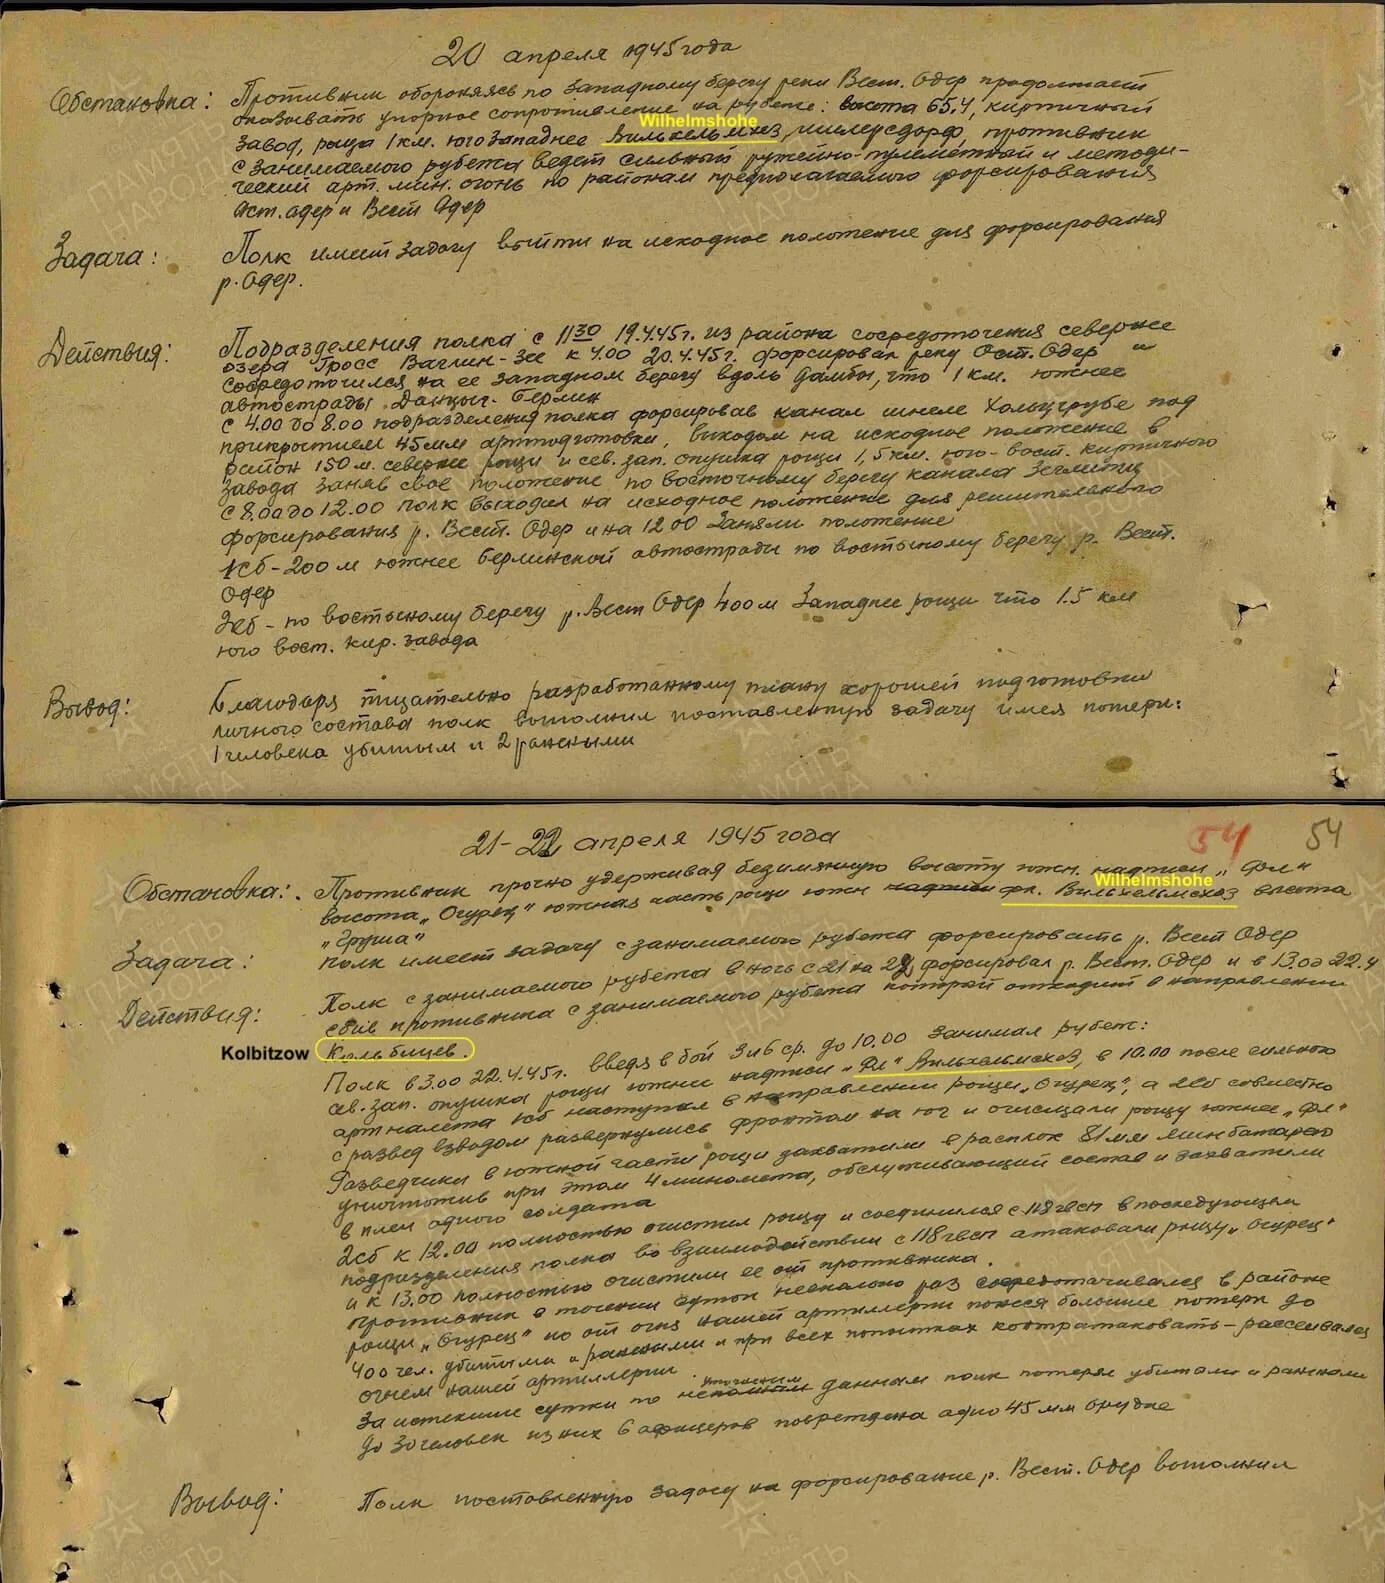 20 апреля 1945 года
Обстановка: Противник обороняясь по западному берегу реки Вест. Одер продолжает
оказывать упорное сопротивление на рубеже: высота 65,4, кирпичный
Wilhelmshohe
завод, роща 1 км. юго западнее Вильхельмсхез, милерсдорф, противник
с занимаемого рубежа ведет сильный ружейно-пулеметный и методи-
ческий арт. мин. огонь по районам предполагаемого форсирования
Ост. Одер и Вест Одер
Задача: Полк имеет задачу выйти на исходное положение для форсирования
р. Одер.
Действия: Подразделения полка с 11 30 19.4.45г. из района сосредоточения севернее
озера Гросс Ваглин-зее к 4.00 20.4.45г. форсировал реку Ост. Одер и
сосредоточился на ее западном берегу вдоль дамбы, что 1 км. южнее
автострады Данциг-Берлин
С 4.00 до 8.00 подразделения полка форсировав канал шнеле Хольцгрубе под
прикрытием 45мм артподготовки, выходом на исходное положение в
район 150 м. севернее рощи и сев. зап. опушка рощи 1,5 км. юго-вост. кирпичного
завода заняв свое положение по восточному берегу канала
С 8.00 до 12.00 полк выходил на исходное положение для решительного
форсирования р. Вест. Одер и на 12 00 заняли положение
1сб - 200 м южнее берлинской автострады по востычному берегу р. Вест.
Одер
2сб - по востычному берегу р. Вест Одер 400м западнее рощи что 1.5 км
юго вост. кир. завода
Вывод: Благодаря тщательно разработанному плану хорошей подготовки
личного состава полк выполнил поставленную задачу имея потери:
1 человека убитым и 2 ранеными
21-22 апреля 1945 года
54 54
Обстановка: Противник прочно удерживая безимянную высоту южн. надписи „Фл"
Wilhelmshohe
высота „Огурец" южная часть рощи южн надписи фл. Вильхельмсхез высота
„Груша"
Задача: Полк имеет задачу с занимаемого рубежа форсировать р. Вест Одер
Действия: Полк с занимаемого рубежа в ночь с 21 на 22 форсировал р. Вест. Одер и в 13.00 22.4
сбив противника с занимаемого рубежа который отходит в направлении
Kolbitzow Кольбицев.
Полк в 3.00 22.4.45г. введя в бой 3 и 6 ср. до 10.00 занимал рубеж:
сев. зап. опушка рощи южнее надписи „Фл" Вильхельмсхез, в 10.00 после сильного
артналета 1сб наступал в направлении рощи „Огурец", а 2сб совместно
с развед взводом развернулись фронтом на юг и очищали рощу южнее „Фл"
Разведчики в южной части рощи захватили в расплох 81 мм минбатарею
уничтожив при этом 4 миномета, обслуживающий состав и захватили
в плен одного солдата
2сб к 12.00 полностью очистил рощу и соединился с 118 гвсп в последующем
подразделения полка во взаимодействии с 118 гвсп атаковали рощу „Огурец"
и к 13.00 полностью очистили ее от противника.
Противник в течении суток несколько раз сосредотачивался в районе
рощи „Огурец" но от огня нашей артиллерии понеся большие потери до
400 чел. убитыми и ранеными и при всех попытках контратаковать - рассеивался
огнем нашей артиллерии.
За истекшие сутки по неполным данным полк потерял убитыми и ранеными
до 30 человек из них 6 офицеров повреждена одно 45 мм орудие
Вывод: Полк поставленную задачу на форсирование р. Вест. Одер выполнил